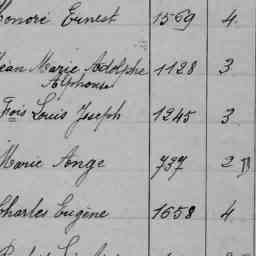 Honoré Ernest 1569 4
Jean Marie Adolphe 1128 3
Alphonse
Fçois Louis Joseph 1245 3
Marie Ange 737 2
Charles Eugène 1658 4